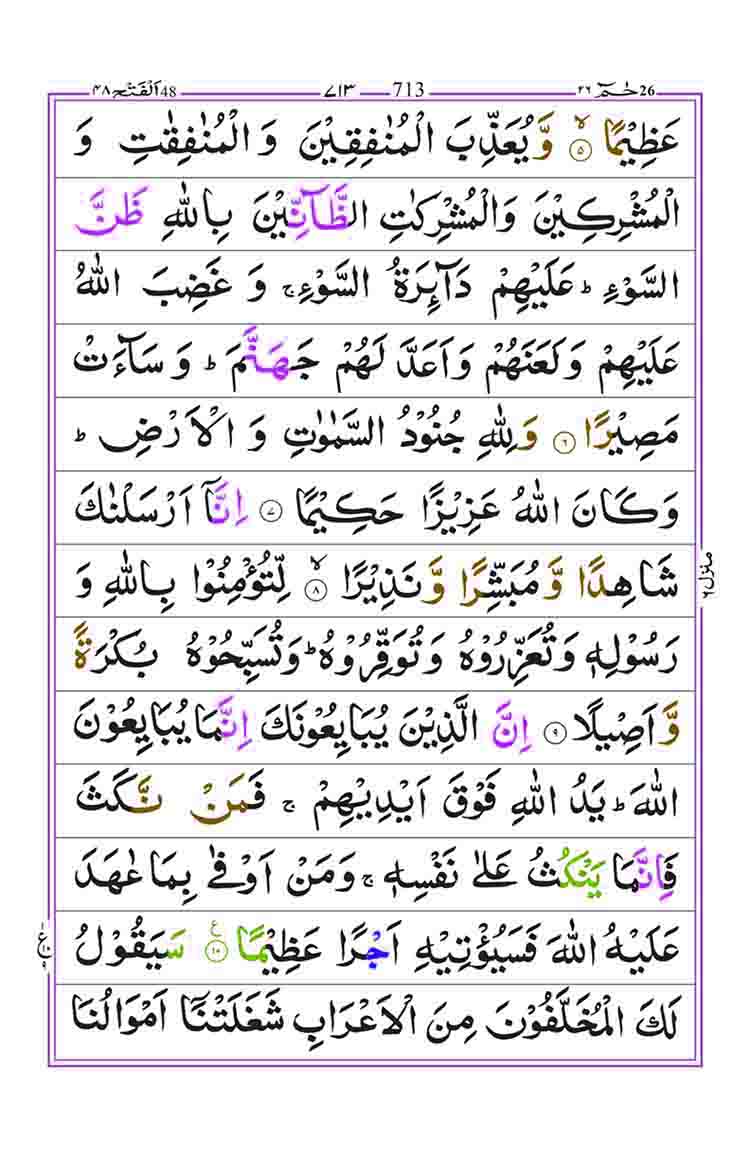 اَلْفَتْح48 ۴۸ ۷۱۳ 713 حٰمٓ26 ۲۶
عَظِیْمًا ۙ۵ وَّ یُعَذِّبَ الْمُنٰفِقِیْنَ وَ الْمُنٰفِقٰتِ وَ
الْمُشْرِكِیْنَ وَالْمُشْرِكٰتِ الظَّآنِّیْنَ بِاللّٰهِ ظَنَّ
السَّوْءِ ؕ عَلَیْهِمْ دَآىِٕرَةُ السَّوْءِ ۚ وَ غَضِبَ اللّٰهُ
عَلَیْهِمْ وَلَعَنَهُمْ وَاَعَدَّ لَهُمْ جَهَنَّمَ ؕ وَ سَآءَتْ
مَصِیْرًا ۶ وَلِلّٰهِ جُنُوْدُ السَّمٰوٰتِ وَ الْاَرْضِ ؕ
وَكَانَ اللّٰهُ عَزِیْزًا حَكِیْمًا ۷ اِنَّاۤ اَرْسَلْنٰكَ
شَاهِدًا وَّ مُبَشِّرًا وَّ نَذِیْرًا ۙ۸ لِّتُؤْمِنُوْا بِاللّٰهِ وَ
رَسُوْلِهٖ وَتُعَزِّرُوْهُ وَتُوَقِّرُوْهُ ؕ وَتُسَبِّحُوْهُ بُكْرَةً
وَّ اَصِیْلًا ۹ اِنَّ الَّذِیْنَ یُبَایِعُوْنَكَ اِنَّمَا یُبَایِعُوْنَ
اللّٰهَ ؕ یَدُ اللّٰهِ فَوْقَ اَیْدِیْهِمْ ۚ فَمَنْ نَّكَثَ
فَاِنَّمَا یَنْكُثُ عَلٰى نَفْسِهٖ ۚ وَمَنْ اَوْفٰى بِمَا عٰهَدَ
عَلَیْهُ اللّٰهَ فَسَیُؤْتِیْهِ اَجْرًا عَظِیْمًا ۱۰ ع سَیَقُوْلُ
لَكَ الْمُخَلَّفُوْنَ مِنَ الْاَعْرَابِ شَغَلَتْنَاۤ اَمْوَالُنَا
منزل۶